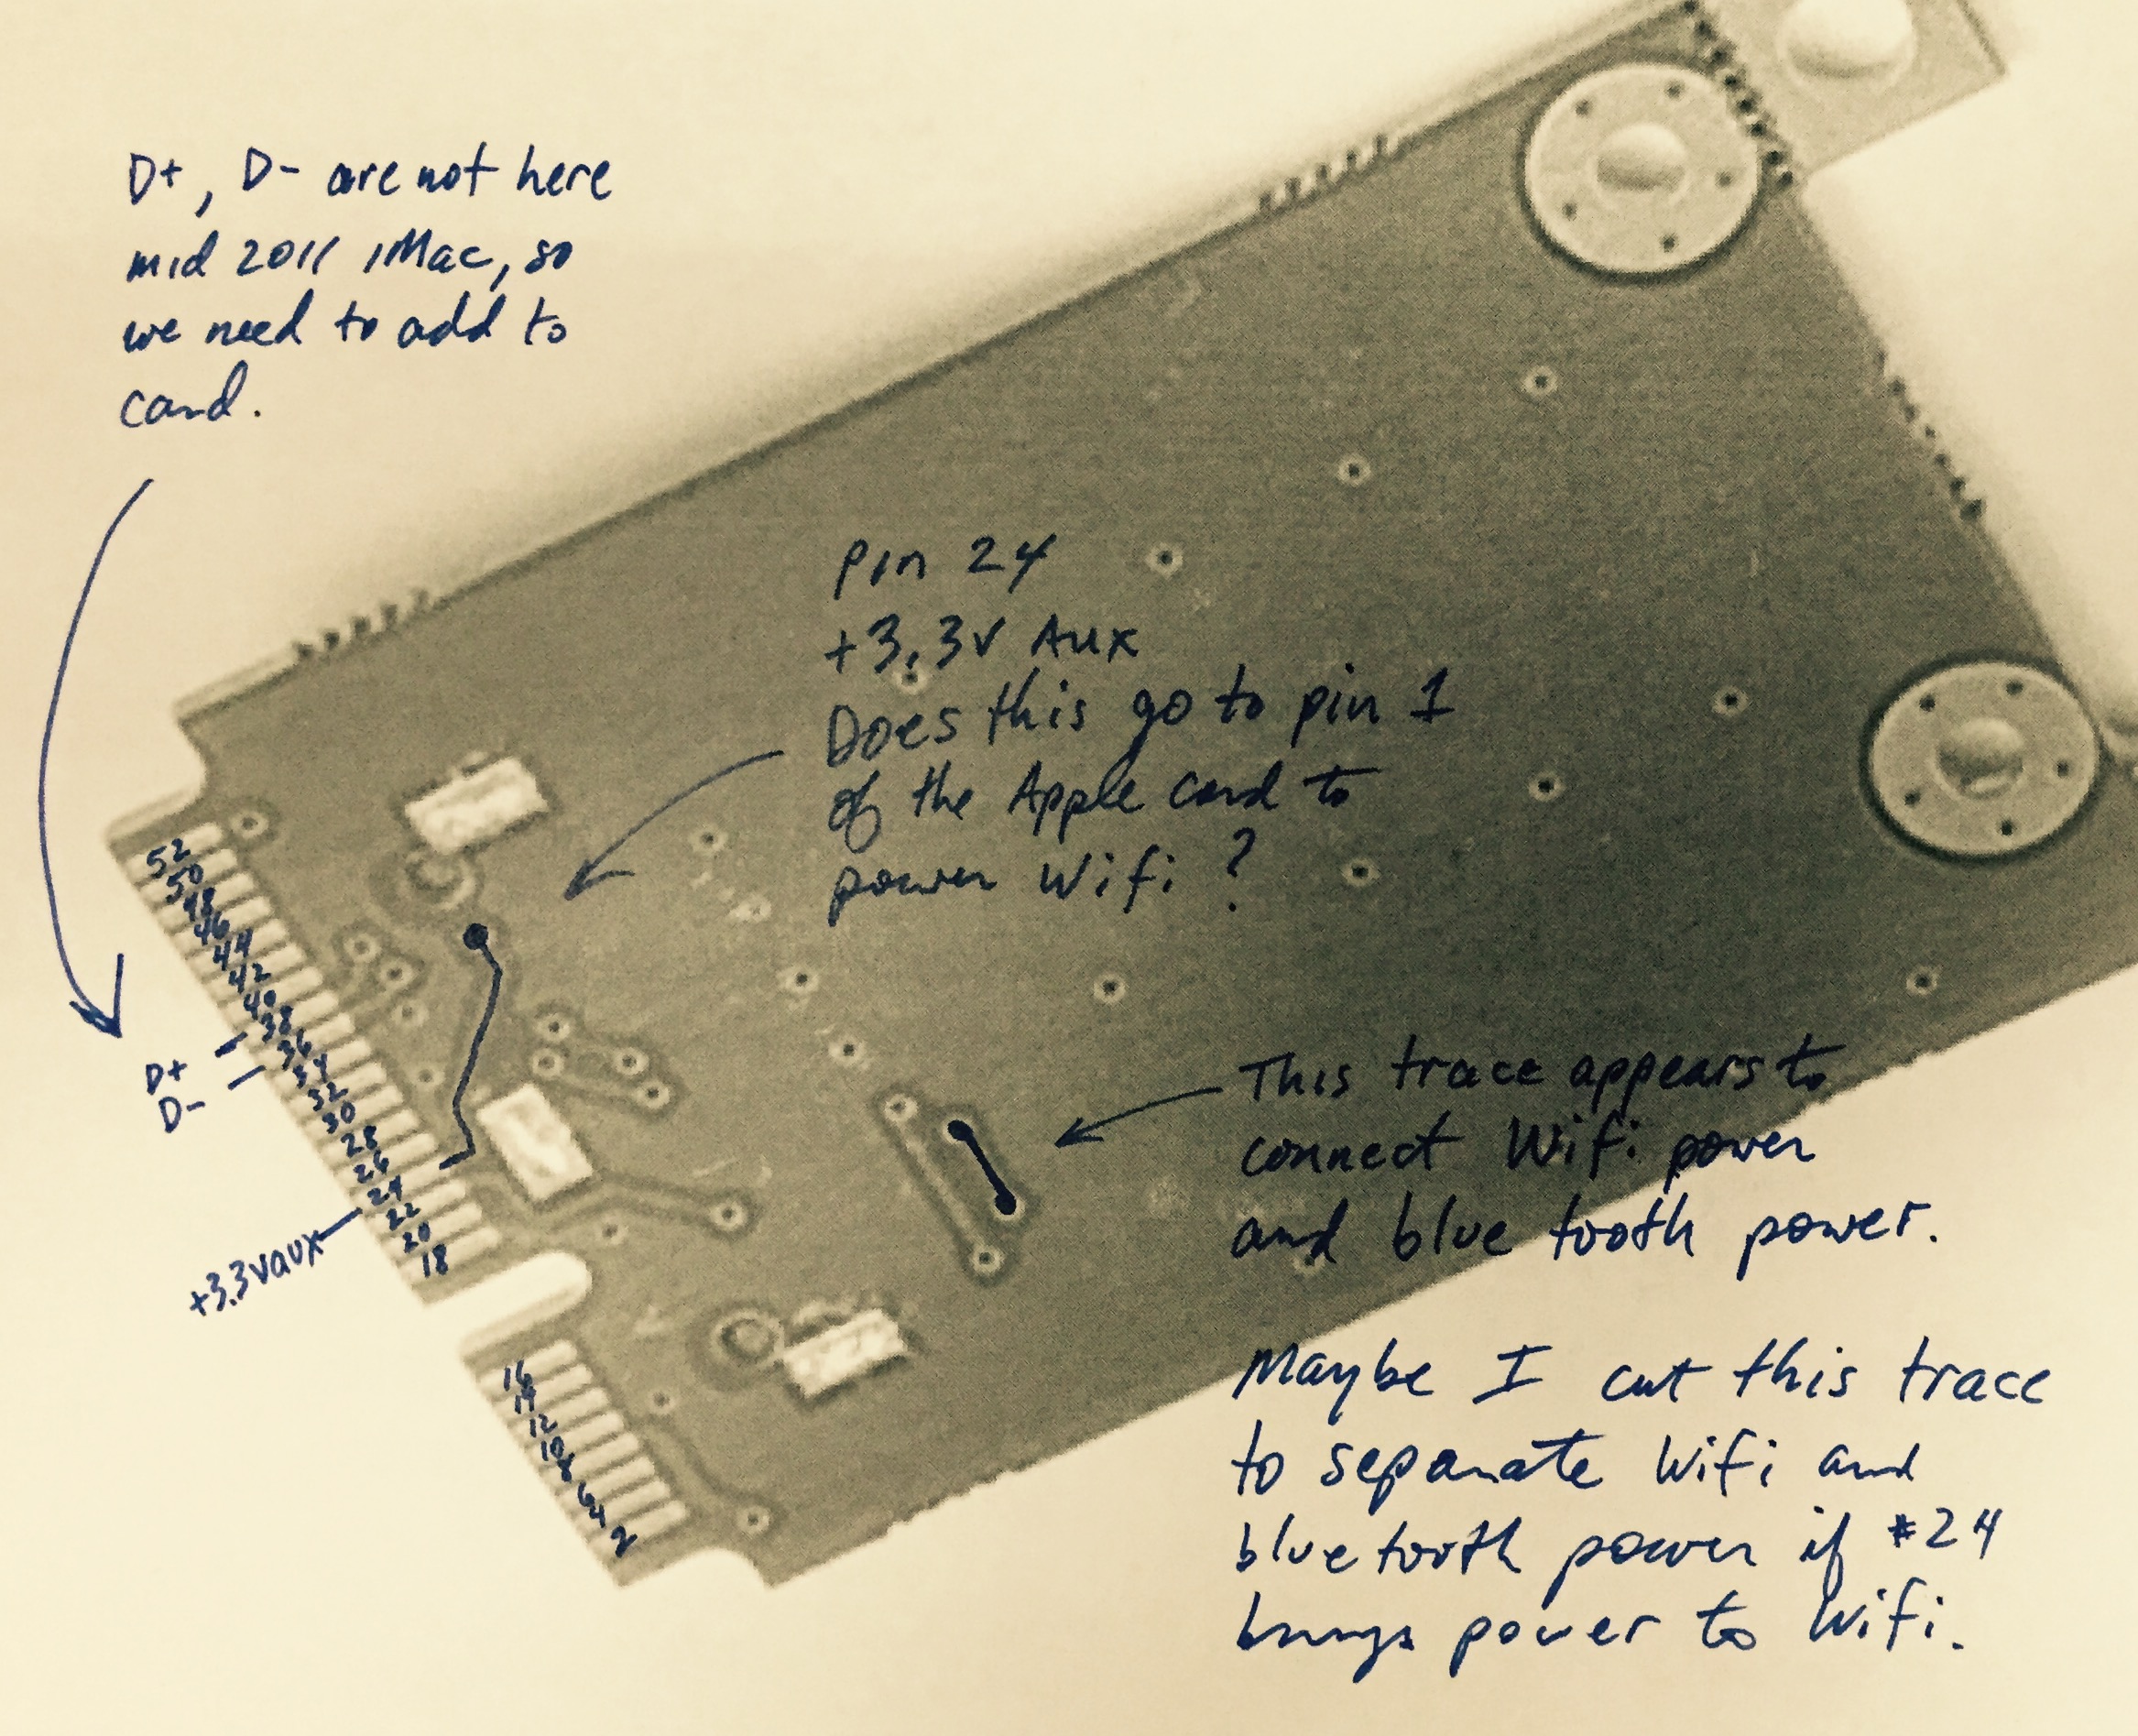 D+, D- are not here
mid 2011 iMac, so
we need to add to
card.
Pin 24
+3.3v Aux
Does this go to pin 1
of the Apple card to
power Wifi ?
52
50
48
46
44
42
40
38
36
34
32
30
28
26
24
22
20
18
D+
D-
+3.3vaux
This trace appears to
connect Wifi power
and blue tooth power.
16
14
12
10
8
6
4
2
Maybe I cut this trace
to separate Wifi and
bluetooth power if #24
brings power to Wifi.